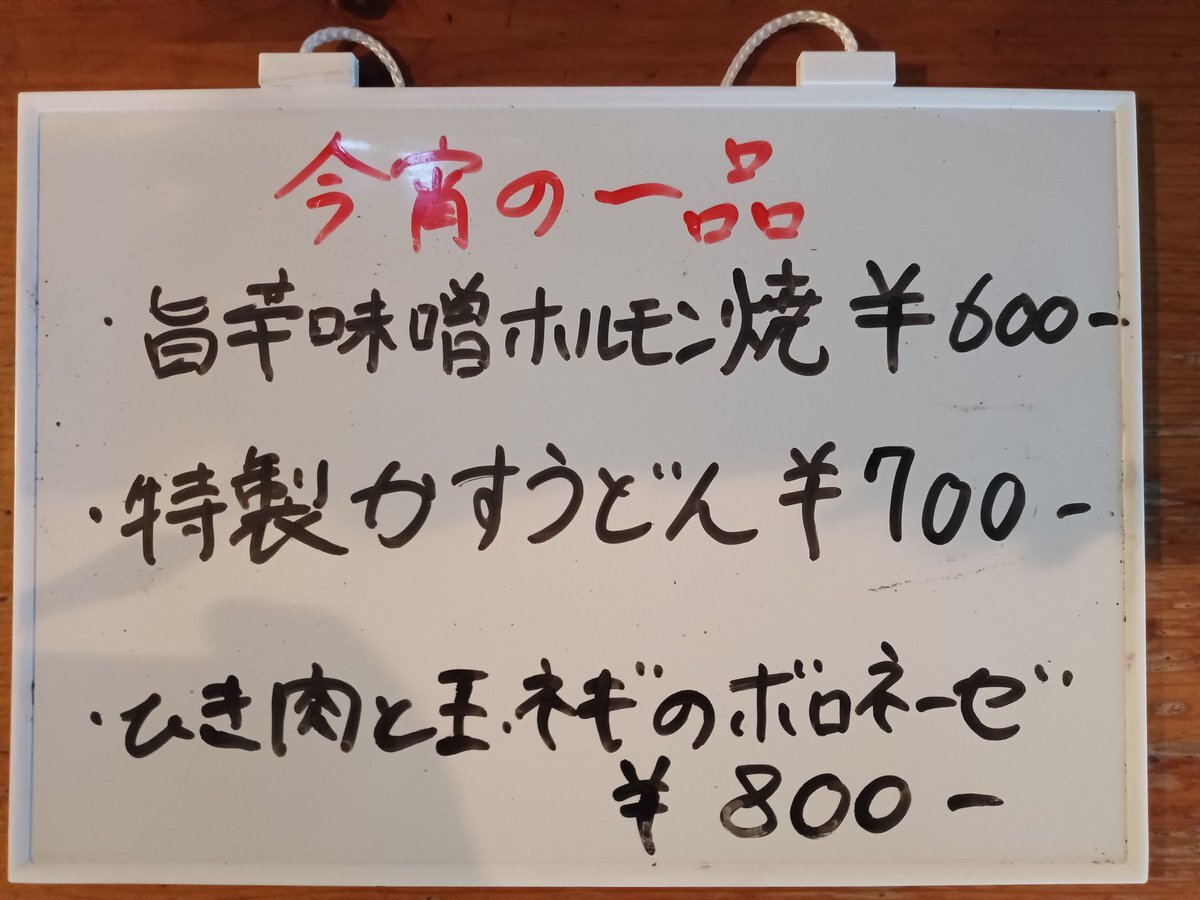 今宵の一品
・旨辛味噌ホルモン焼 ¥600-
・特製かすうどん ¥700-
・ひき肉と玉ネギのボロネーゼ
¥800-